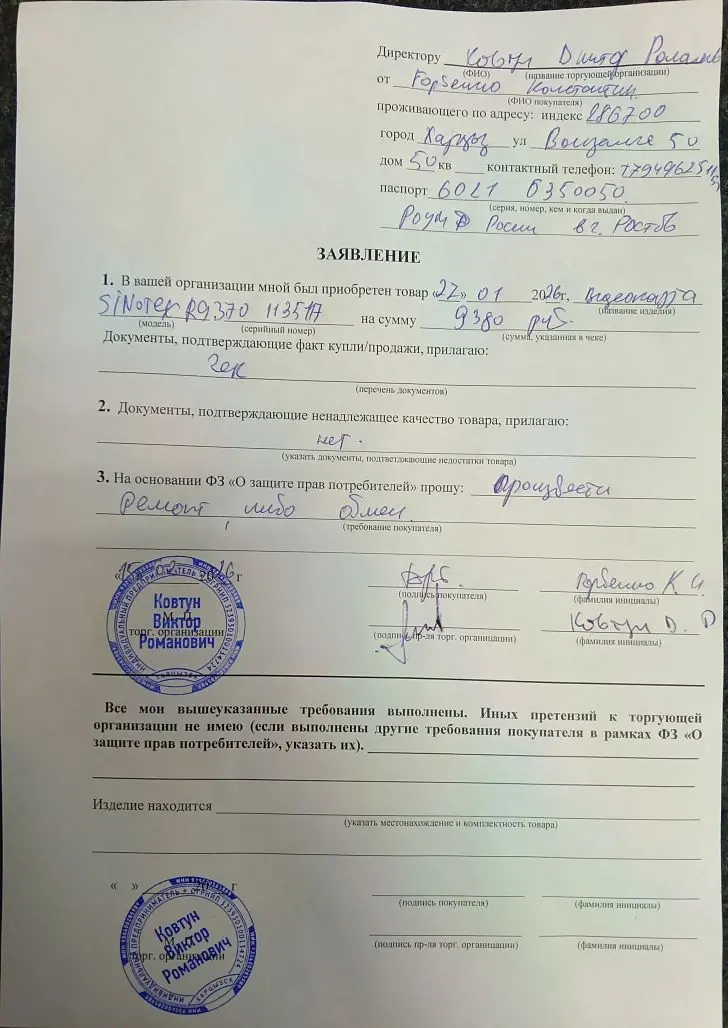 Директору Ковтун Виктор Романов
(ФИО) (название торгующей организации)
от Горбенко Константин
(ФИО покупателя)
проживающего по адресу: индекс 286700
город Харцыз ул 50
дом 50 кв ____ контактный телефон: +7949625
паспорт 6021 6350050
(серия, номер, кем и когда выдан)
России в г. Ростов
ЗАЯВЛЕНИЕ
1. В вашей организации мной был приобретен товар «27» 01 2026г, Видеокарта
(название изделия)
SiNoTeK R9370 113517 на сумму 9380 руб.
(модель) (серийный номер) (сумма, указанная в чеке)
Документы, подтверждающие факт купли/продажи, прилагаю:
Чек
(перечень документов)
2. Документы, подтверждающие ненадлежащее качество товара, прилагаю:
нет.
(указать документы, подтветлжающие недостатки товара)
3. На основании ФЗ «О защите прав потребителей» прошу: произвести
Ремонт либо обмен
(требование покупателя)
«15» 02 2026г
(подпись покупателя) Горбенко К И.
(фамилия инициалы)
М П
торг. организации
(подпись пр-ля торг. организации)
(фамилия инициалы)
ИНДИВИДУАЛЬНЫЙ ПРЕДПРИНИМАТЕЛЬ * ОГРНИП 323930100134774
Ковтун
Виктор
Романович
ХАРЦЫЗСК
Все мои вышеуказанные требования выполнены. Иных претензий к торгующей
организации не имею (если выполнены другие требования покупателя в рамках ФЗ «О
защите прав потребителей», указать их).
Изделие находится
(указать местонахождение и комплектность товара)
« » 20 г
(подпись покупателя) (фамилия инициалы)
М П
торг. организации
(подпись пр-ля торг. организации) (фамилия инициалы)
ИНДИВИДУАЛЬНЫЙ ПРЕДПРИНИМАТЕЛЬ * ОГРНИП 323930100134774
Ковтун
Виктор
Романович
ХАРЦЫЗСК